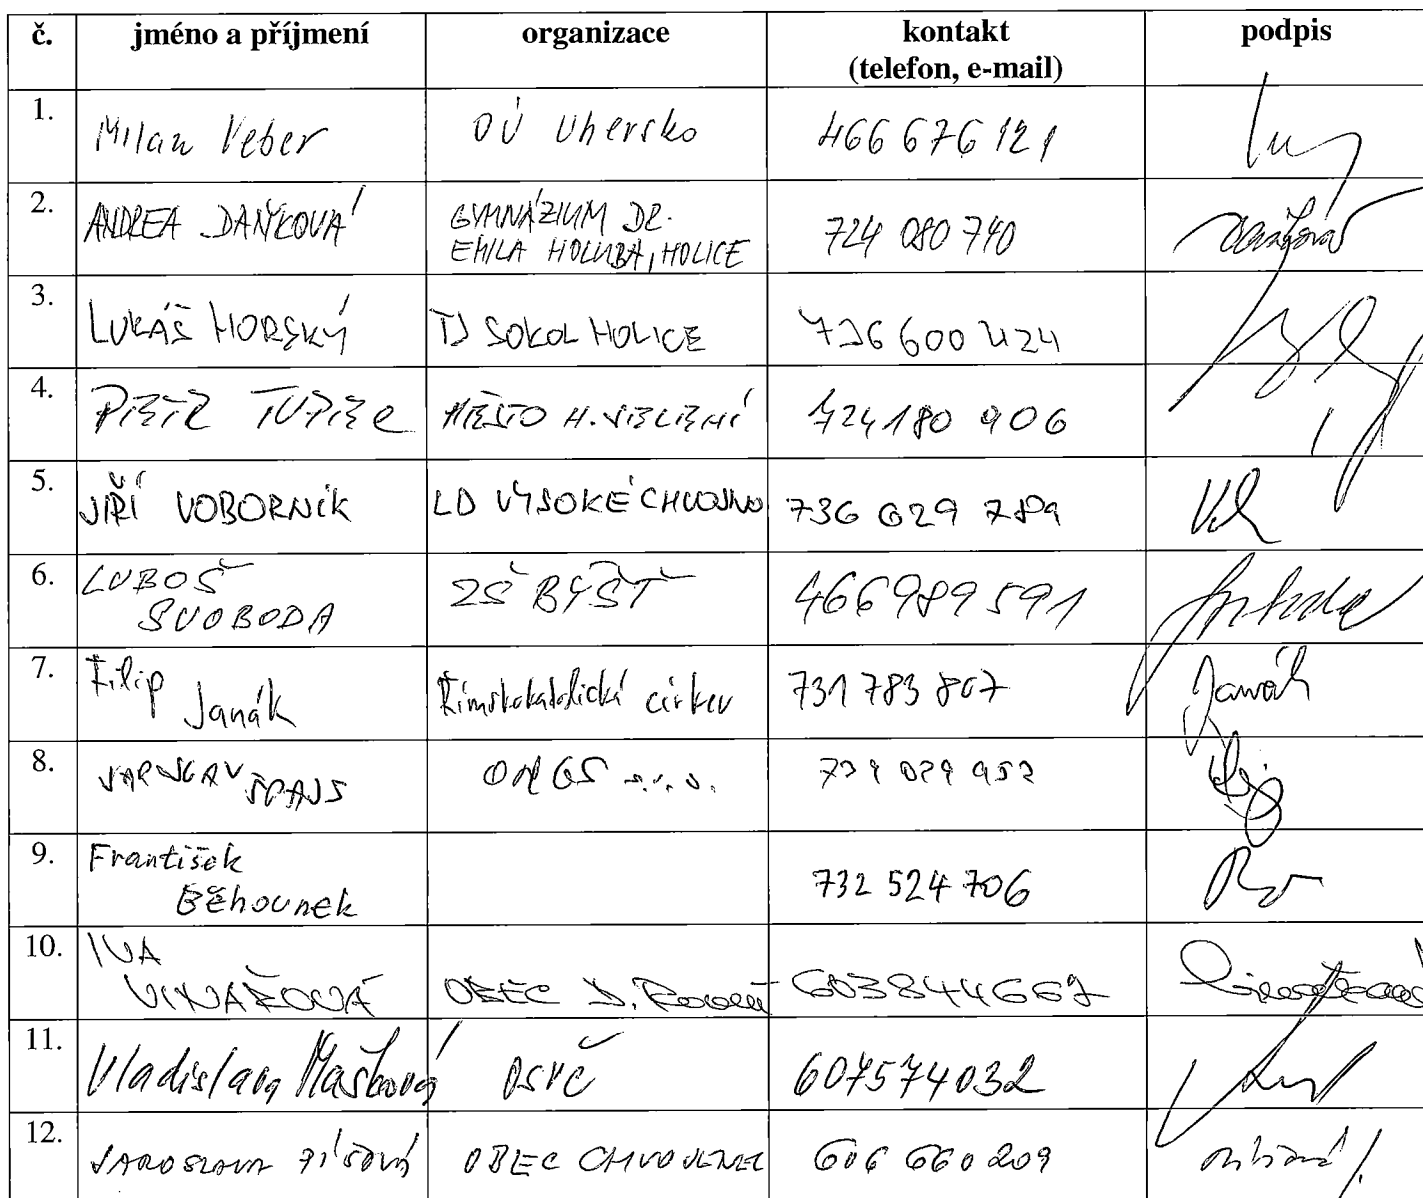 č. jméno a příjmení organizace kontakt podpis
(telefon, e-mail)
1. Milan Veber OÚ Uhersko 466 676 121
2. ANDREA DAŇKOVÁ GYMNÁZIUM DR.
EMILA HOLUBA, HOLICE 724 080 740
3. LUKÁŠ HORSKÝ TJ SOKOL HOLICE 736 600 424
4. PETR MĚSTO H. JELENÍ 724 180 906
5. JIŘÍ VOBORNÍK LD VYSOKÉ CHVOJNO 736 629 789
6. LUBOŠ
SVOBODA ZŠ BÝŠŤ 466989591
7. Filip
Janák Římskokatolická církev 731 783 807 Janák
8. JAROSLAV
9. František
Běhounek 732 524 706
10. IVA
VINAŘOVÁ OBEC D. 603844667
11. Vladislava Mašková OSVČ 607574032
12. JAROSLAVA OBEC CHVOJENEC 606 660 209